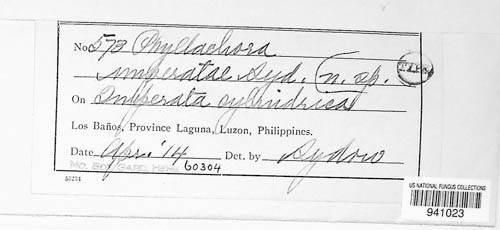 No. 573 Phyllachora
imperatae Syd. n. sp. TYPE
On Imperata cylindrica
Los Baños, Province Laguna, Luzon, Philippines.
Date Apr. '14 Det. by Sydow
MO. BOT. GARD. HERB. 60304
53234
US NATIONAL FUNGUS COLLECTIONS
941023